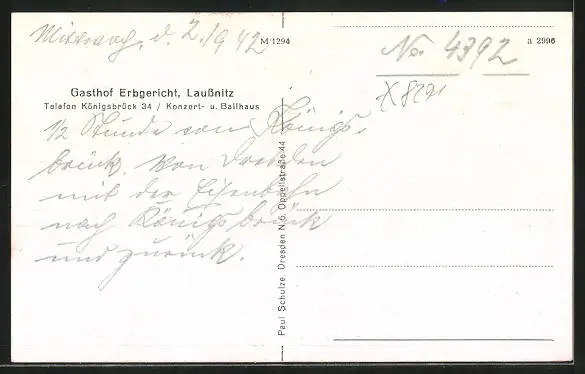 Mittwoch, d. 2./1942
M/1294
No. 4392
a 2996
X8291
Gasthof Erbgericht, Laußnitz
Telefon Königsbrück 34 / Konzert- u. Ballhaus
1/2 Stunde von Königs-
brück. Von Dresden
mit der Eisenbahn
nach Königsbrück
und zurück.
Paul Schulze, Dresden N 6, Oppellstraße 44